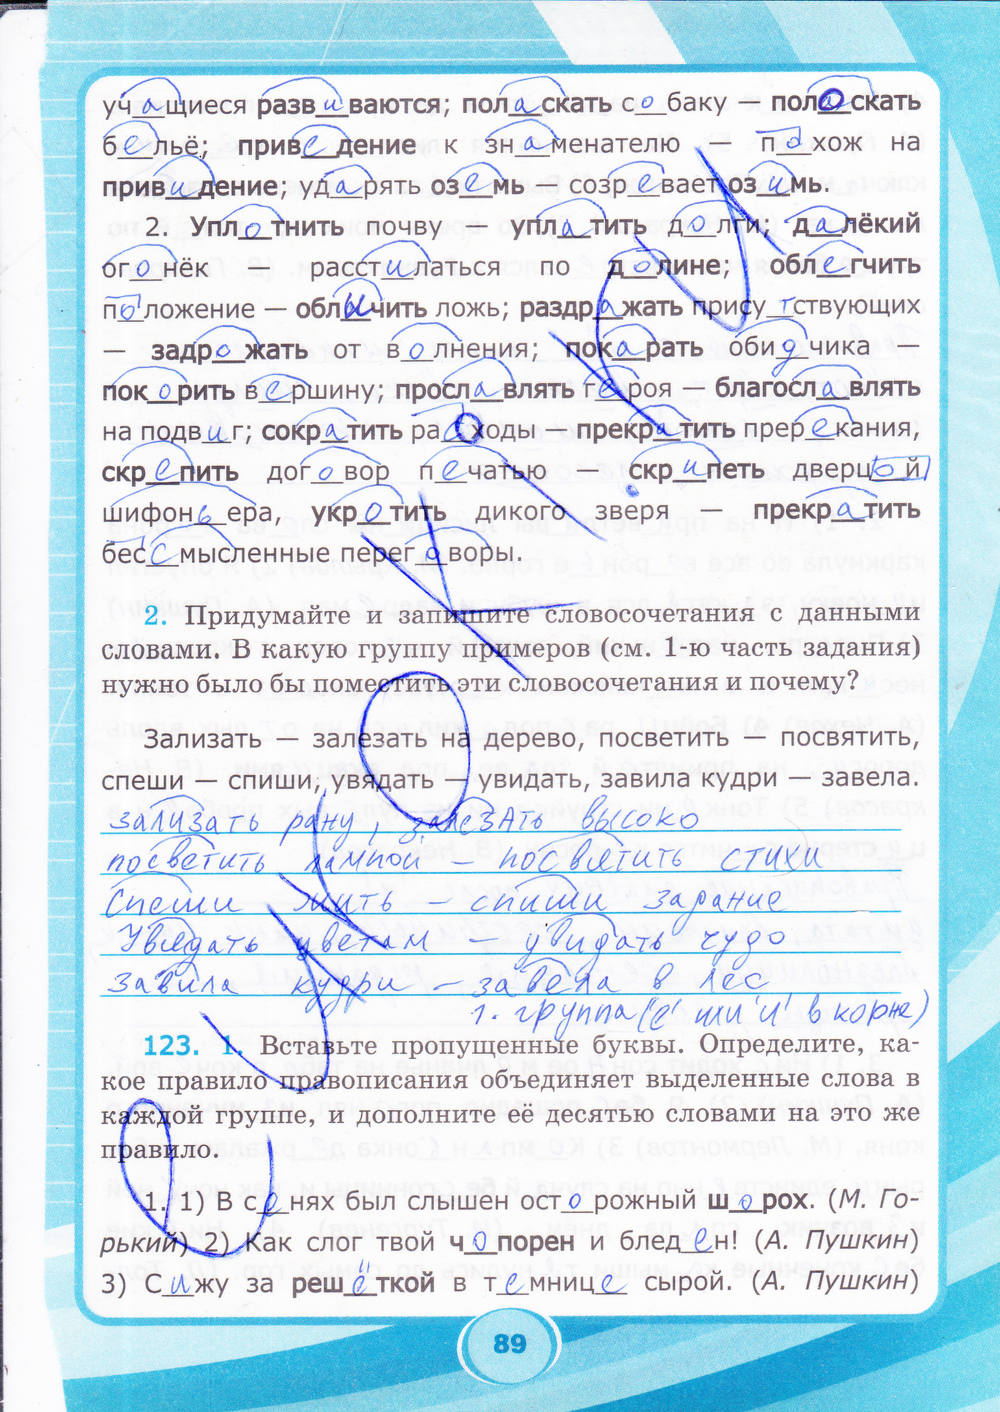 учащиеся развиваются; поласкать собаку — полоскать
бельё; приведение к знаменателю — похож на
привидение; ударять оземь — созревает озимь.
2. Уплотнить почву — уплатить долги; далёкий
огонёк — расстилаться по долине; облегчить
положение — обличить ложь; раздражать присутствующих
— задрожать от волнения; покарать обидчика —
покорить вершину; прославлять героя — благославлять
на подвиг; сократить расходы — прекратить пререкания,
скрепить договор печатью — скрипеть дверцой
шифоньера, укротить дикого зверя — прекратить
бессмысленные переговоры.
2. Придумайте и запишите словосочетания с данными
словами. В какую группу примеров (см. 1-ю часть задания)
нужно было бы поместить эти словосочетания и почему?
Зализать — залезать на дерево, посветить — посвятить,
спеши — спиши, увядать — увидать, завила кудри — завела.
зализать рану, залезать высоко
посветить лампой посвятить стихи
Спеши жить – спиши задание
Увядать цветам – увидать чудо
Завила кудри – завела в лес
1. группа ("е" или "и" в корне)
123. 1. Вставьте пропущенные буквы. Определите, ка-
кое правило правописания объединяет выделенные слова в
каждой группе, и дополните её десятью словами на это же
правило.
1. 1) В сенях был слышен осторожный шорох. (М. Го-
рький) 2) Как слог твой чопорен и бледен! (А. Пушкин)
3) Сижу за решёткой в темнице сырой. (А. Пушкин)
89